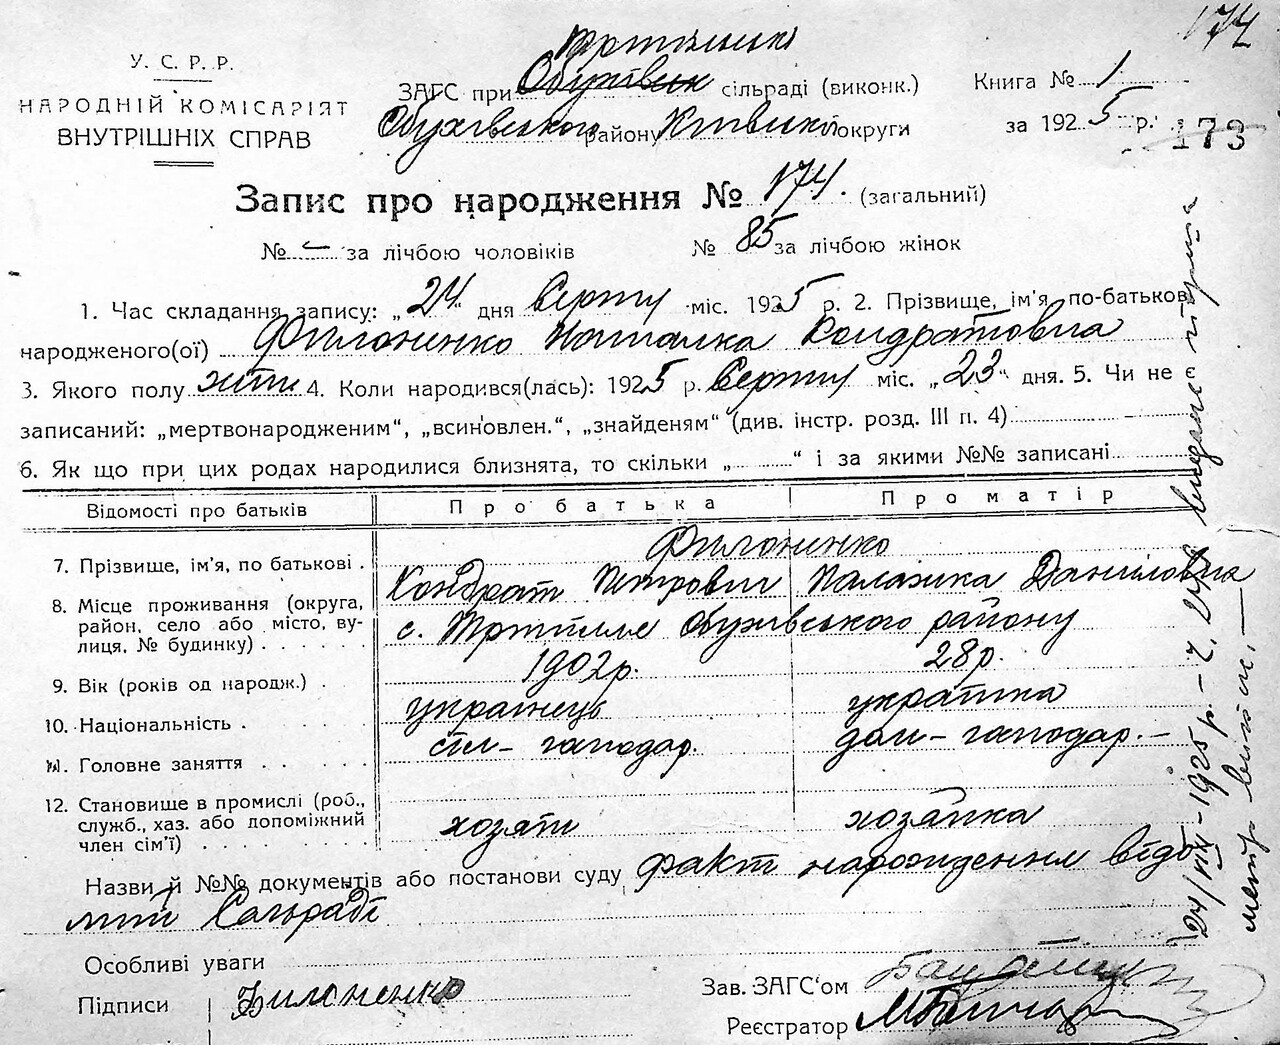 174
У. С. Р. Р.
НАРОДНІЙ КОМІСАРІЯТ
ВНУТРІШНІХ СПРАВ
ЗАГС при Обухівськ сільраді (виконк.)
Обухівського району Київської округи
Книга № 1
за 1925 р.
173
Запис про народження № 174. (загальний)
№ – за лічбою чоловіків № 85 за лічбою жінок
1. Час складання запису: „24" дня Серпня міс. 1925 р. 2. Прізвище, ім'я по-батькові
народженого(ої) Филоненко Наталка Кондратовна
3. Якого полу жін. 4. Коли народився(лась): 1925 р. Серпня міс. „23" дня. 5. Чи не є
записаний: „мертвонародженим", „всиновлен.", „знайденям" (див. інстр. розд. III п. 4)
6. Як що при цих родах народилися близнята, то скільки „ " і за якими №№ записані
Відомості про батьків Про батька Про матір
7. Прізвище, ім'я, по батькові Филоненко
Кондрат Петрович Палажка Даниловна
8. Місце проживання (округа, район, село або місто, вулиця, № будинку) с. Трипілле Обухівського району
9. Вік (років од народж.) 1902 р. 28 р.
10. Національність українець українка
11. Головне заняття сіл– господар. дом– господар.–
12. Становище в промислі (роб., служб., хаз. або допоміжний член сім'ї) хозяїн хозяйка
Назви й №№ документів або постанови суду факт народження відо
мий Сільраді
Особливі уваги
Підписи Филоненко
Зав. ЗАГС'ом
Реєстратор
24/VIII–1925 р.